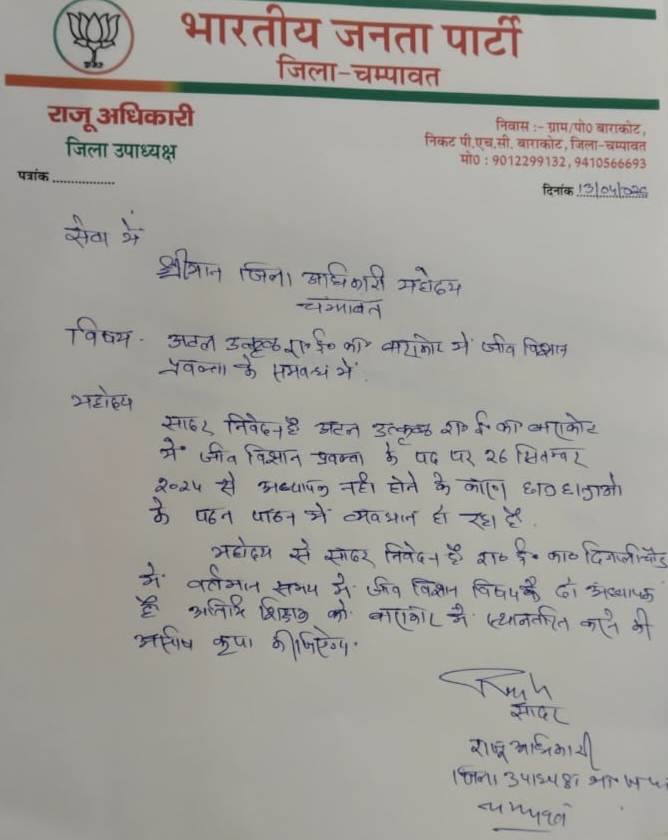 भारतीय जनता पार्टी
जिला-चम्पावत
राजू अधिकारी
जिला उपाध्यक्ष
निवास :- ग्राम/पो0 बाराकोट,
निकट पी.एच.सी. बाराकोट, जिला-चम्पावत
मो0 : 9012299132, 9410566693
पत्रांक ................
दिनांक 13/04/026
सेवा में
श्रीमान जिला अधिकारी महोदय
चम्पावत
विषय - अटल उत्कृष्ठ रा० इ० का० बाराकोट में जीव विज्ञान
प्रवक्ता के सम्बन्ध में.
महोदय
सादर निवेदन है अटल उत्कृष्ठ रा० इ० का बाराकोट
में जीव विज्ञान प्रवक्ता के पद पर 26 सितम्बर
से अध्यापक नही होने के कारण छात्र छात्राओ
के पठन पाठन में व्यवधान हो रहा है.
महोदय से सादर निवेदन है रा० इ० का०
में वर्तमान समय में जीव विज्ञान विषय के दो अध्यापक
है अतिथि शिक्षक को बाराकोट में स्थानतरित करने की
कृपा कीजियेगा.
सादर
राजू अधिकारी
जिला उपाध्यक्ष भा ज पा
चम्पावत